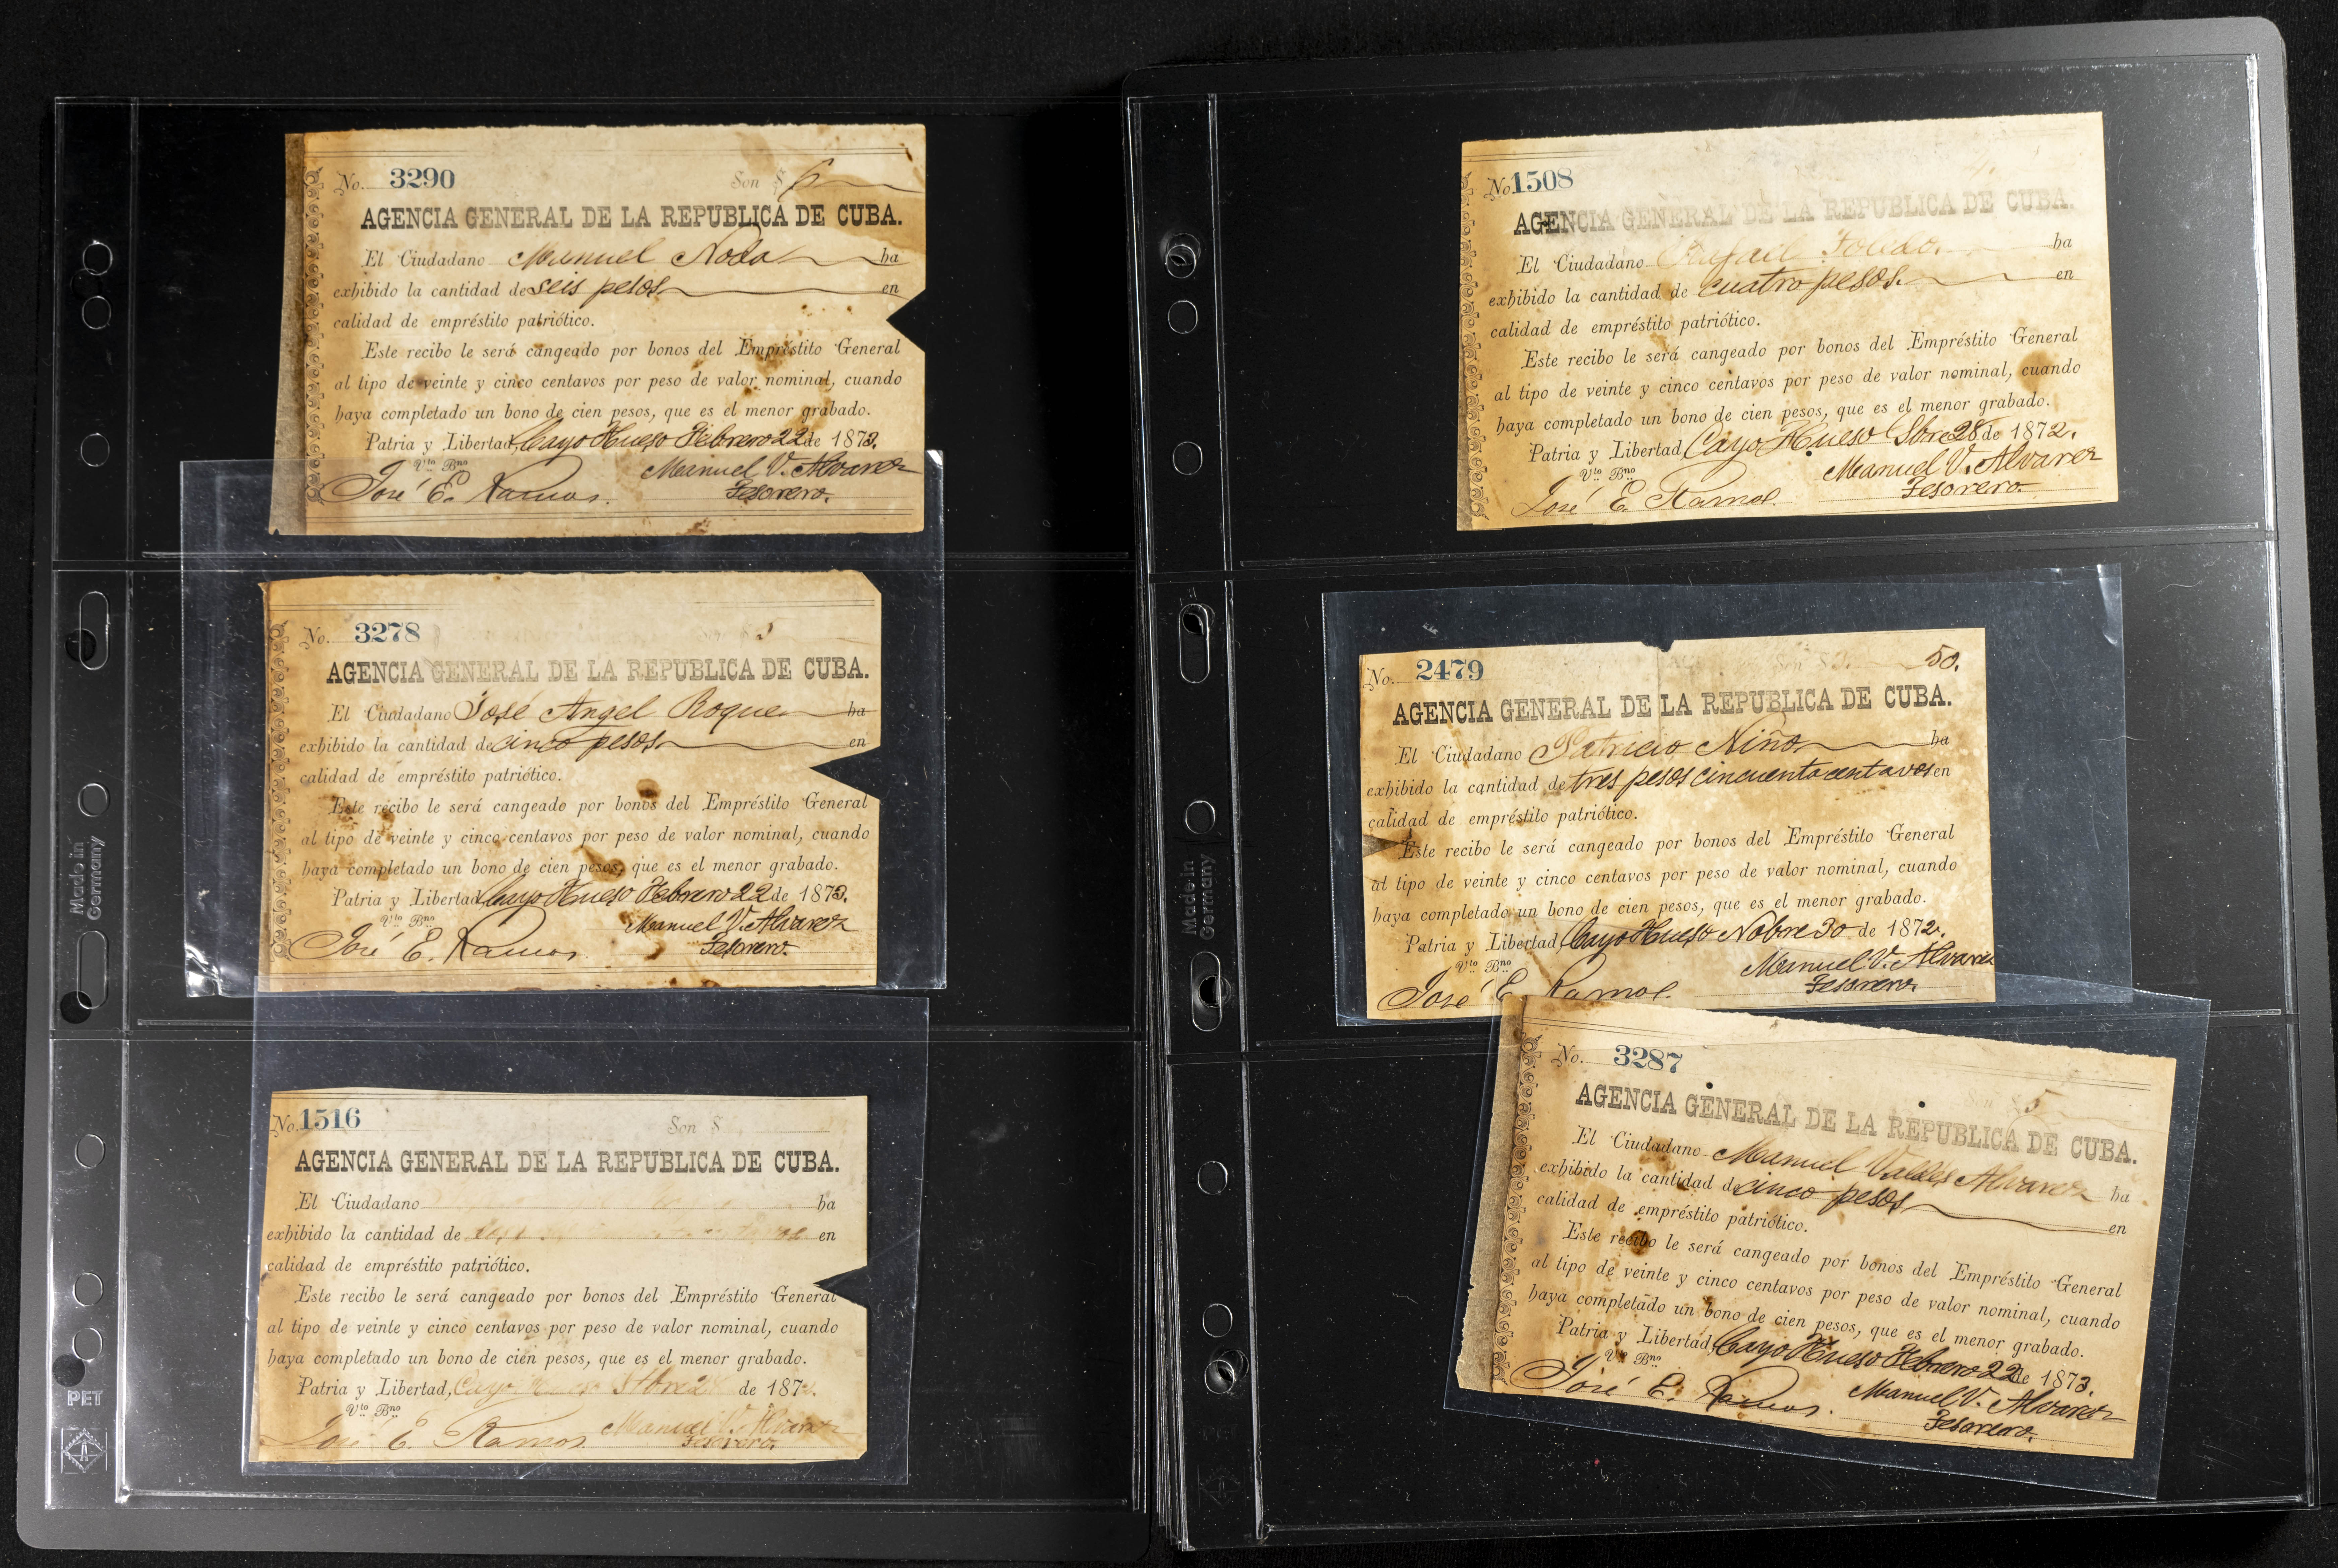 No. 3290 Son $ 6
AGENCIA GENERAL DE LA REPUBLICA DE CUBA.
El Ciudadano Manuel Noda ha
exhibido la cantidad de seis pesos en
calidad de empréstito patriótico.
Este recibo le será cangeado por bonos del Empréstito General
al tipo de veinte y cinco centavos por peso de valor nominal, cuando
haya completado un bono de cien pesos, que es el menor grabado.
Patria y Libertad, Cayo Hueso Febrero 22 de 1873.
Vto. Bno.
José E. Ramos. Manuel V. Alvarez
Tesorero.
No. 3278 Son $ 5
AGENCIA GENERAL DE LA REPUBLICA DE CUBA.
El Ciudadano José Angel Roque ha
exhibido la cantidad de cinco pesos en
calidad de empréstito patriótico.
Este recibo le será cangeado por bonos del Empréstito General
al tipo de veinte y cinco centavos por peso de valor nominal, cuando
haya completado un bono de cien pesos, que es el menor grabado.
Patria y Libertad, Cayo Hueso Febrero 22 de 1873.
Vto. Bno.
José E. Ramos. Manuel V. Alvarez
Tesorero.
No. 1516 Son $
AGENCIA GENERAL DE LA REPUBLICA DE CUBA.
El Ciudadano ha
exhibido la cantidad de en
calidad de empréstito patriótico.
Este recibo le será cangeado por bonos del Empréstito General
al tipo de veinte y cinco centavos por peso de valor nominal, cuando
haya completado un bono de cien pesos, que es el menor grabado.
Patria y Libertad, Cayo Hueso Sbre 28 de 1872.
Vto. Bno.
José E. Ramos Manuel V. Alvarez
Tesorero.
Made in
Germany
PET
No. 1508 4.
AGENCIA GENERAL DE LA REPUBLICA DE CUBA.
El Ciudadano Rafael Toledo. ha
exhibido la cantidad de cuatro pesos. en
calidad de empréstito patriótico.
Este recibo le será cangeado por bonos del Empréstito General
al tipo de veinte y cinco centavos por peso de valor nominal, cuando
haya completado un bono de cien pesos, que es el menor grabado.
Patria y Libertad, Cayo Hueso Sbre 28 de 1872.
Vto. Bno.
José E. Ramos. Manuel V. Alvarez
Tesorero.
No. 2479 Son $ 3. 50.
AGENCIA GENERAL DE LA REPUBLICA DE CUBA.
El Ciudadano Patricio Niño ha
exhibido la cantidad de tres pesos cincuenta centavos en
calidad de empréstito patriótico.
Este recibo le será cangeado por bonos del Empréstito General
al tipo de veinte y cinco centavos por peso de valor nominal, cuando
haya completado un bono de cien pesos, que es el menor grabado.
Patria y Libertad, Cayo Hueso Nobre 30 de 1872.
Vto. Bno.
José E. Ramos. Manuel V. Alvarez
Tesorero.
No. 3287 5
AGENCIA GENERAL DE LA REPUBLICA DE CUBA.
El Ciudadano Manuel Valdés Alvarez ha
exhibido la cantidad de cinco pesos en
calidad de empréstito patriótico.
Este recibo le será cangeado por bonos del Empréstito General
al tipo de veinte y cinco centavos por peso de valor nominal, cuando
haya completado un bono de cien pesos, que es el menor grabado.
Patria y Libertad, Cayo Hueso Febrero 22 de 1873.
Vto. Bno.
José E. Ramos. Manuel V. Alvarez
Tesorero.
Made in
Germany